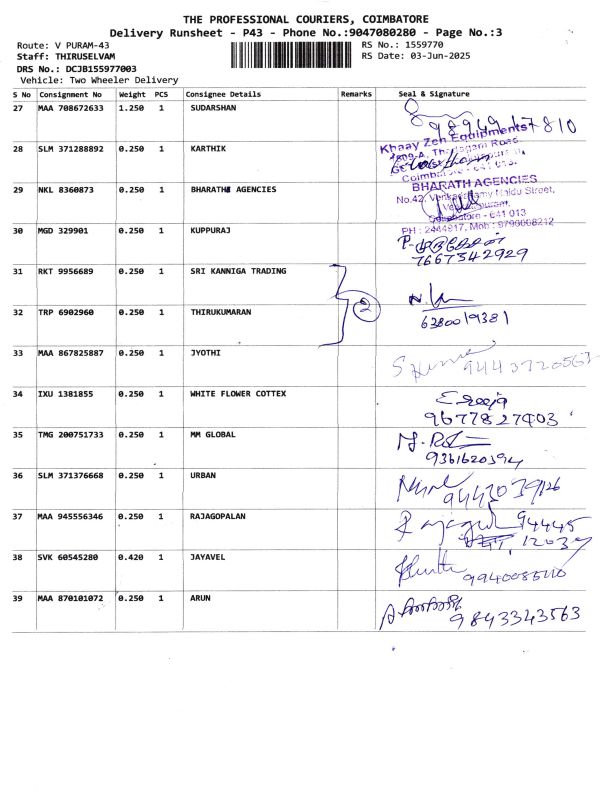 THE PROFESSIONAL COURIERS, COIMBATORE
Delivery Runsheet - P43 - Phone No.:9047080280 - Page No.:3
Route: V PURAM-43 RS No.: 1559770
Staff: THIRUSELVAM RS Date: 03-Jun-2025
DRS No.: DCJB155977003
Vehicle: Two Wheeler Delivery
S No Consignment No Weight PCS Consignee Details Remarks Seal & Signature
27 MAA 708672633 1.250 1 SUDARSHAN
28 SLM 371288892 0.250 1 KARTHIK
Khaay Zen Equipments
Coimbatore - 641 013.
29 NKL 8360873 0.250 1 BHARATH AGENCIES
BHARATH AGENCIES
No.42, Venkadasamy Naidu Street,
Coimbatore - 641 013
PH : 2444917, Mob : 9790008212
30 MGD 329901 0.250 1 KUPPURAJ
7667342929
31 RKT 9956689 0.250 1 SRI KANNIGA TRADING
2
32 TRP 6902960 0.250 1 THIRUKUMARAN
6380019381
33 MAA 867825887 0.250 1 JYOTHI
9443720563
34 IXU 1381855 0.250 1 WHITE FLOWER COTTEX
9677827403
35 TMG 200751733 0.250 1 MM GLOBAL
9361620394
36 SLM 371376668 0.250 1 URBAN
9443039126
37 MAA 945556346 0.250 1 RAJAGOPALAN
94445
12039
38 SVK 60545280 0.420 1 JAYAVEL
39 MAA 870101072 0.250 1 ARUN
9843343563